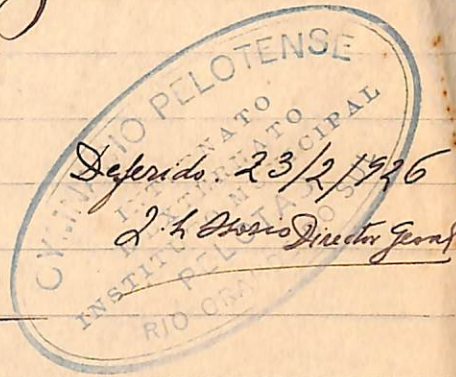 GYMNASIO PELOTENSE
INTERNATO
E EXTERNATO
INSTITUTO MUNICIPAL
PELOTAS
RIO GRANDE DO SUL
Deferido. 23/2/926
Director Geral